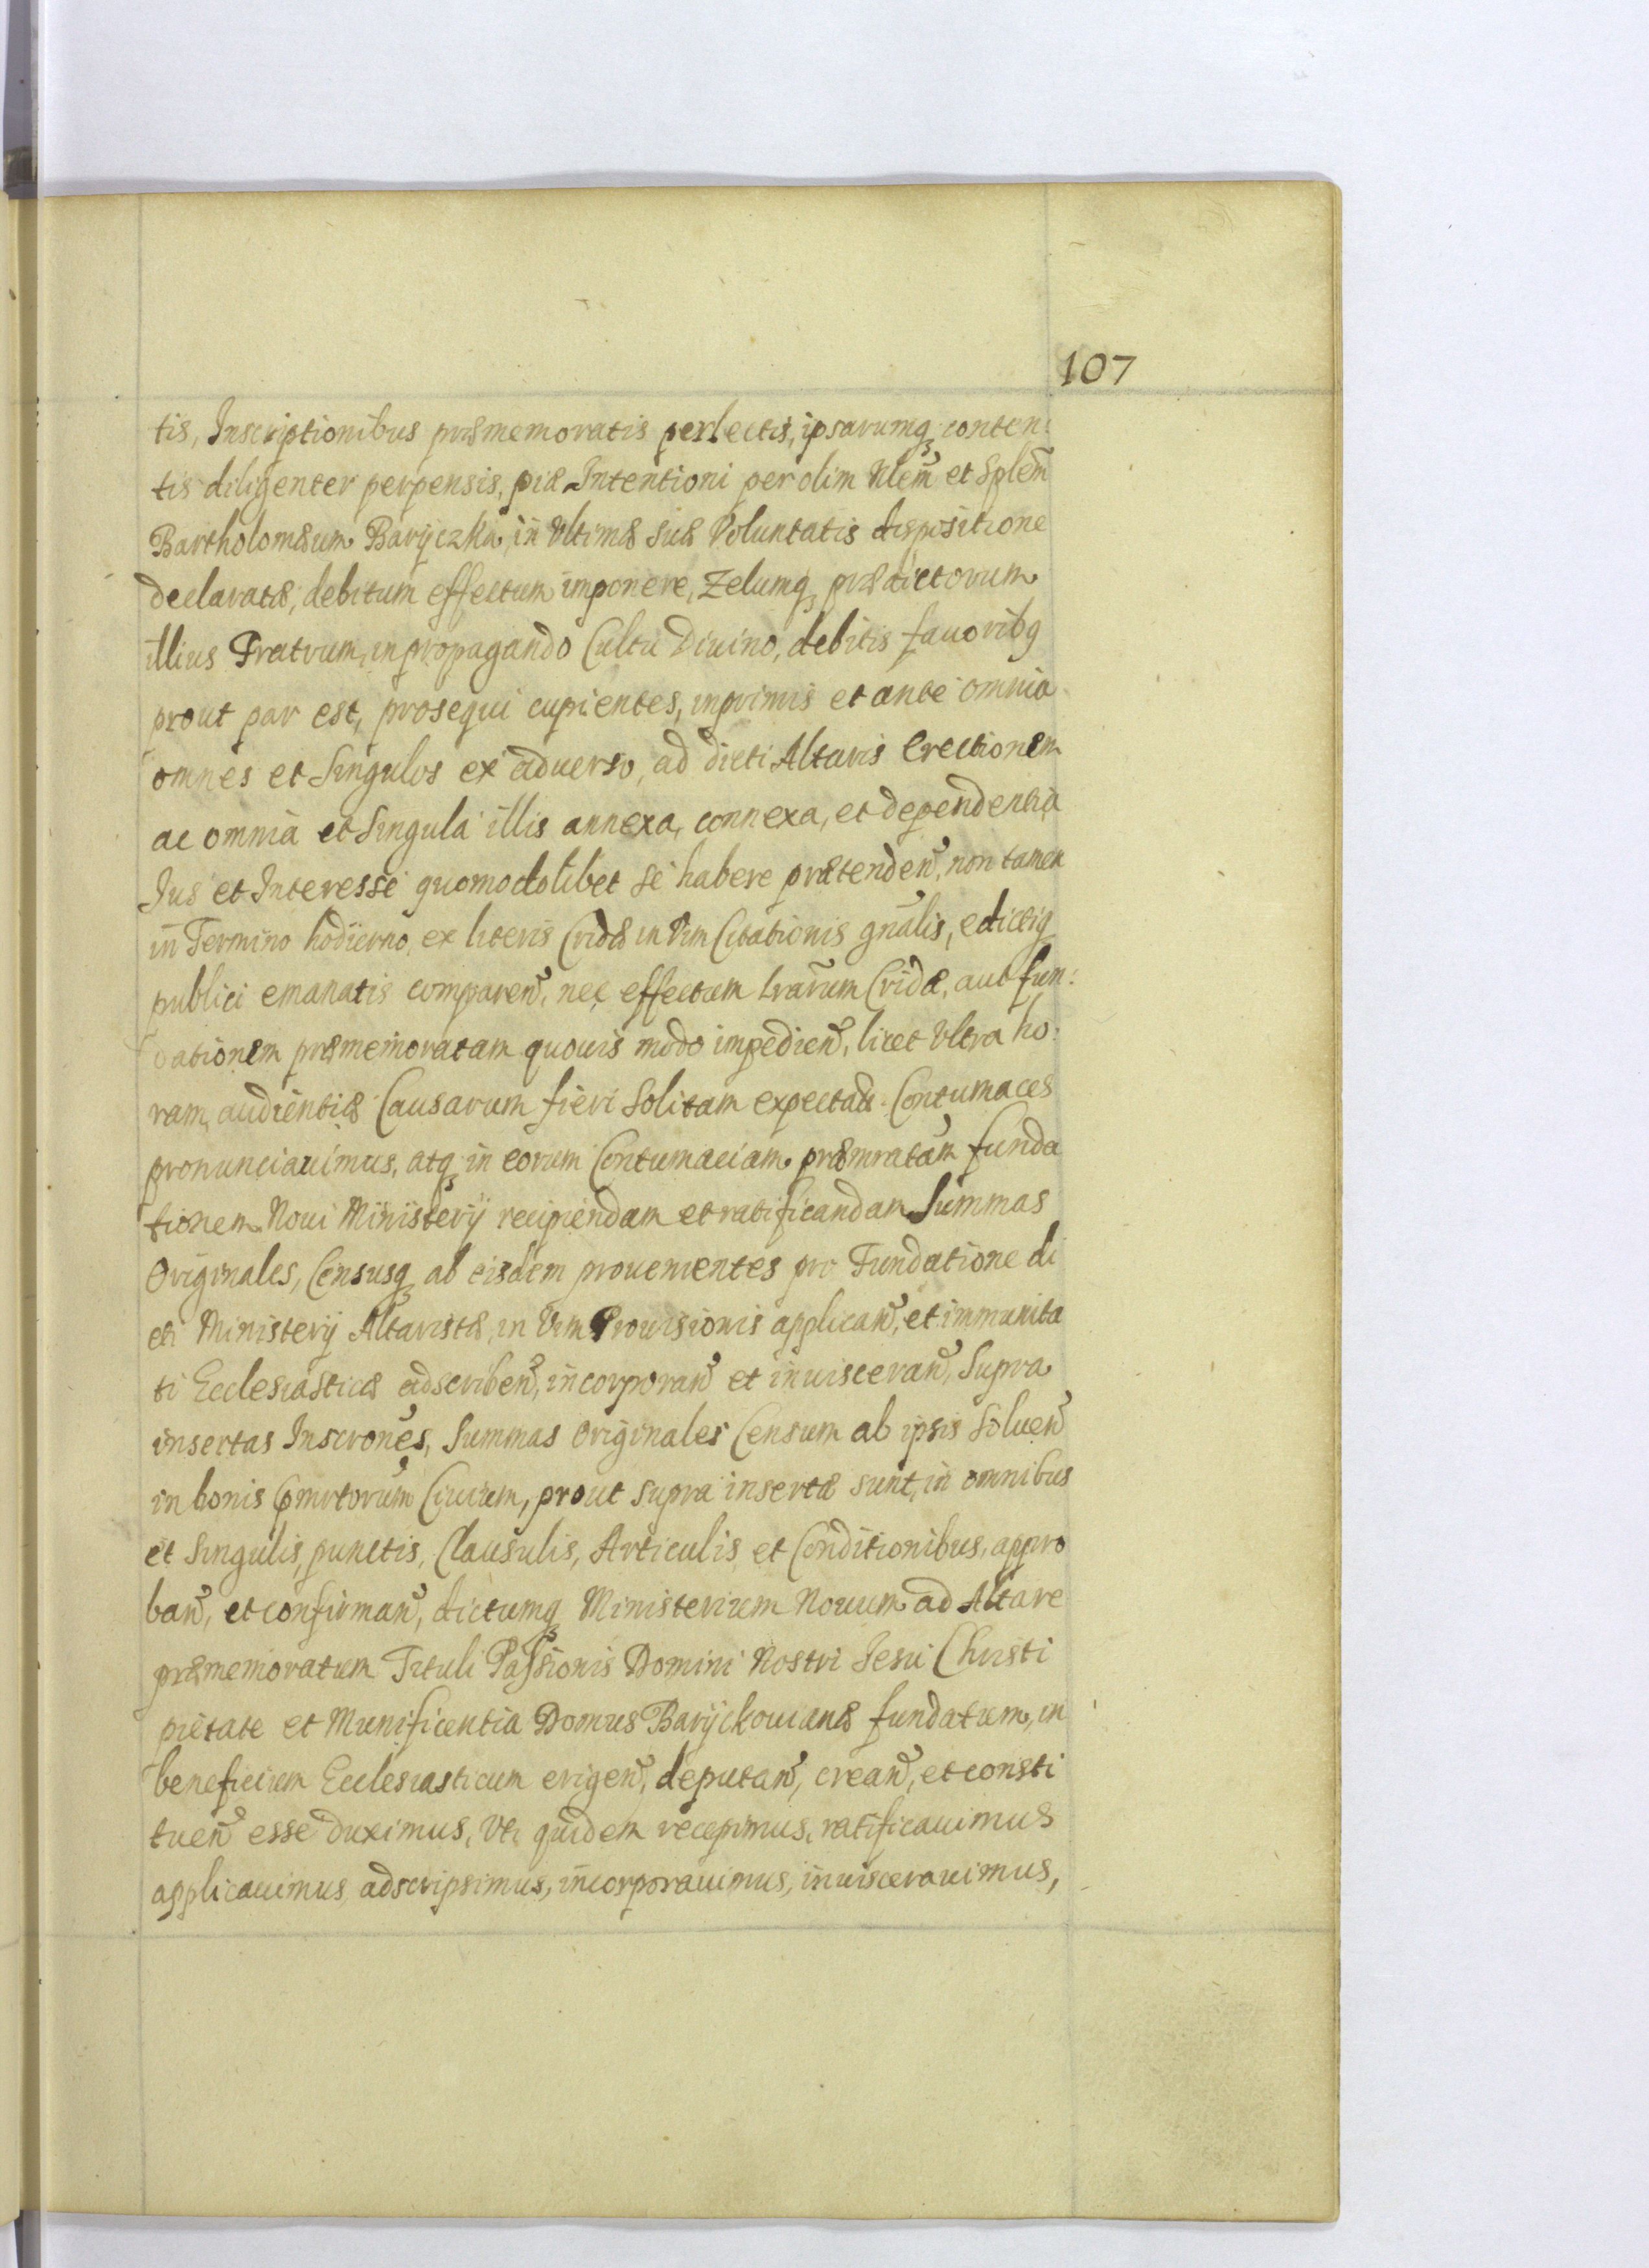 107
tis, Inscriptionibus præmemoratis perlectis, ipsarumq conten:
tis diligenter perpensis, piæ Intentioni per olim Nlem̃ et Splem̃
Bartholomæum Baryczka, in Vltimæ suæ Voluntatis dispositione
declaratæ, debitum effectum imponere, Zelumq prædictorum
illius Fratrum, in propagando Cultu Diuino, debitis fauoribq
prout par est, prosequi cupientes, inprimis et ante omnia
omnes et Singulos ex aduerso, ad dicti Altaris Erectionem
ac omnia et Singula illis annexa, connexa, et dependentia
Ius et Interesse quomodolibet se habere prætendeñ, non tamen
in Termino hodierno, ex literis Cridæ in Vim Citationis gñalis, edictiq
publici emanatis compareñ, nec effectum lrãrum Cridæ, aut fun:
dationem præmemoratam quouis modo impedieñ, licet Vltra ho:
ram, audientiæ Causarum fieri Solitam expectatæ Contumaces
pronunciauimus, atq in eorum Contumaciam præmratam̃ funda
tionem Noui Ministerij recipiendam et ratificandam Summas
Originales, Censusq ab eisdem prouenientes pro Fundatione di
cti Ministerij Altaristæ, in Vim Prouisionis applicañ, et immunita
ti Ecclesiasticæ adscribeñ, incorporañ et inuiscerañ, Supra
insertas Inscroñes, Summas Originales Censum ab ipsis Solueñ
in bonis Civium, prout supra insertæ sunt, in omnibus
et Singulis, punctis, Clausulis, Articulis et Conditionibus, appro
bañ, et confirmañ, dictumq Ministerium Nouum ad Altare
præmemoratum Tituli Passionis Domini Nostri Iesu Christi
pietate et Munificentia Domus Baryckouianæ fundatum, in
beneficium Ecclesiasticum erigeñ, deputañ, creañ, et consti
tueñ esse duximus, Vti quidem recepimus, ratificauimus
applicauimus, adscripsimus, incorporauimus, inuiscerauimus,